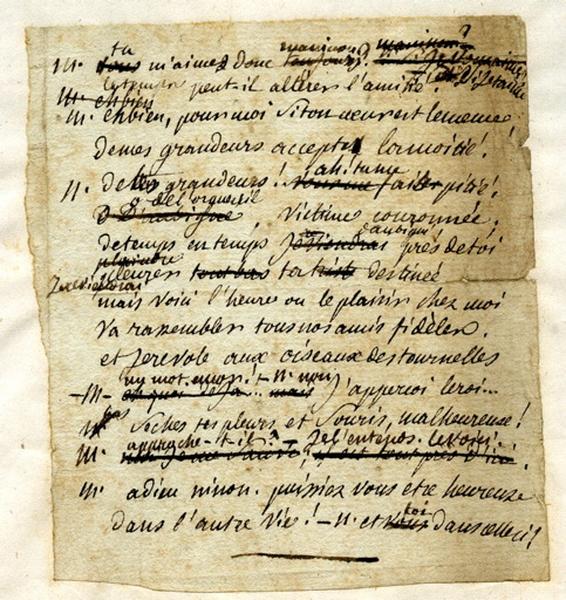 tu
M. vous m'aimez donc toujours?
le tems peut-il altérer l'amitié!
M. ehbien
M. ehbien, pour moi si ton coeur est le meme
de mes grandeurs accepte la moitié!
N. de tes grandeurs! ah! tu me fais pitié!
de l'orgueil
Victime couronnée,
de tems en tems près de toi
plaindre
pleurer ta triste destinée
mais voici l'heure ou le plaisir chez moi
va rassembler tous nos amis fidèles.
et je revole aux oiseaux des tournelles
un mot encor! - N. non
- M - j'apperçoi le roi...
N. bas
seches tes pleurs et souris, malheureuse!
approche-t-il? - le voici.
M.
M. adieu ninon. puissiez vous etre heureuse
toi
dans l'autre vie! - N. et vous dans celle ci!